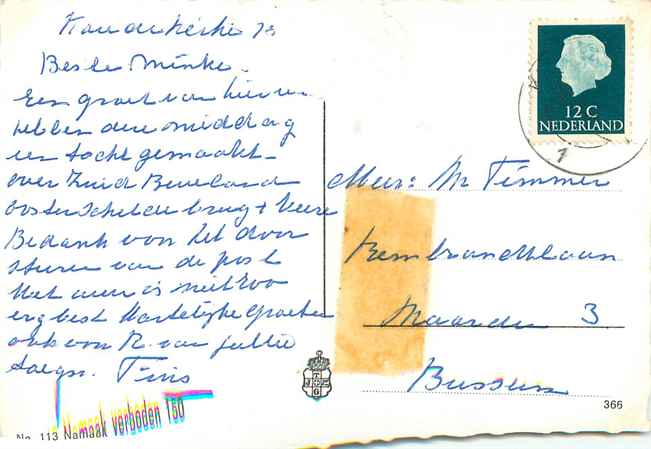 Koudekerke
Beste Minke.
Een groet van hier we
hebben deze middag
een tocht gemaakt
over Zuid Beveland
Oosterscheldebrug + Veere
Bedankt voor het door
sturen van de post
Het weer is niet zoo
erg best Hartelijke groeten
ook van R. van jullie
Tinis
Mevr: M Timmer
Rembrandtlaan
3
Naarden
Bussum
12 C
NEDERLAND
366
No. 113 Namaak verboden 150